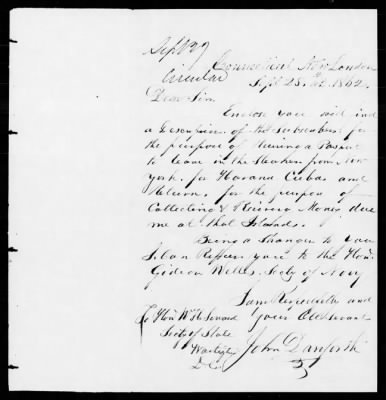 Sept 29
Connecticut New London
Circular
Sept 28th 1862
Dear Sir
Enclose you will find
a Description of the Subscriber for
the purpose of Obtaining a Passport
to leave in the Steamer from New
York for Havana Cuba and
Return for the purpose of
Collecting & Receiving Money due
me at that Islands.
Being a Stranger to you
I Can Reffer you to the Hon.
Gideon Welles Secty of Navy
I am Respectfully and
Your Obt Servant
To Hon Wm H Seward
Secty of State
John Danforth
Washington
D.C.